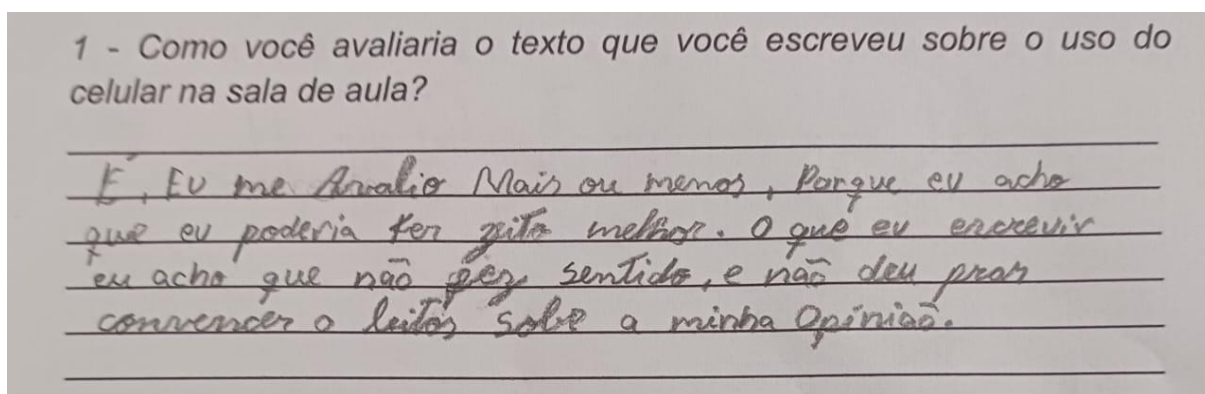 1 - Como você avaliaria o texto que você escreveu sobre o uso do
celular na sala de aula?
É, Eu me Avalio Mais ou menos, Porque eu acho
que eu poderia ter feito melhor. O que eu encrevir
eu acho que não fez sentido, e não deu prar
convencer o leitor sobe a minha Opinião.